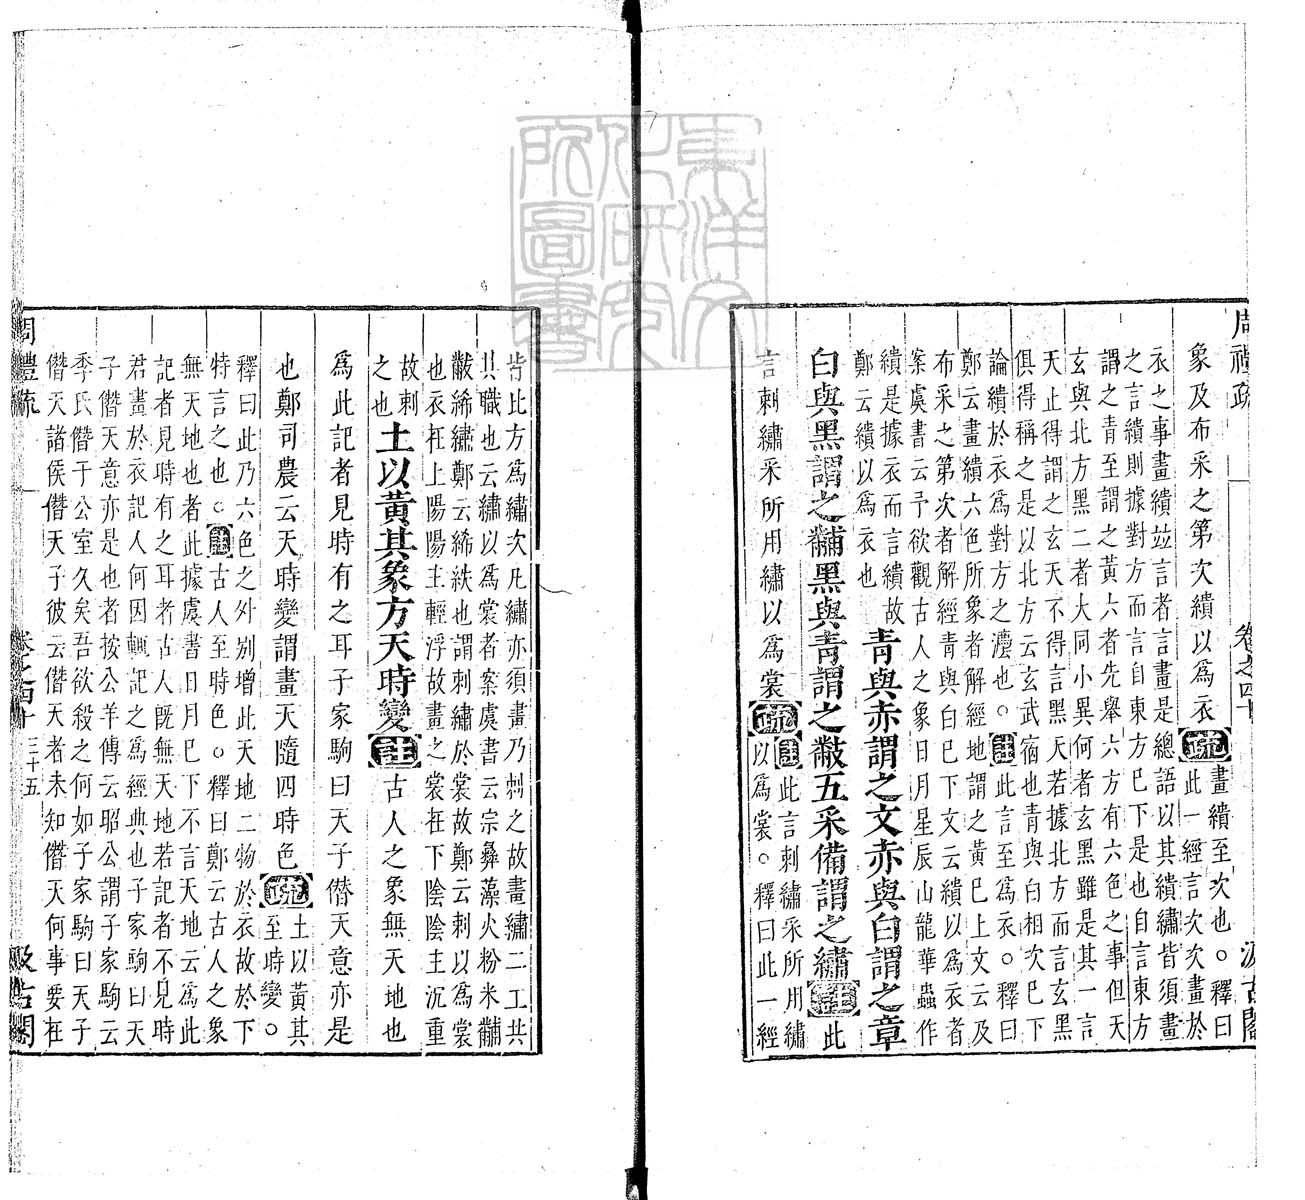 周禮疏 卷之四十 汲古閣
象及布采之第次繢以爲衣 疏 畫繢至次也。釋曰
此一經言次次畫於
衣之事畫繢竝言者言畫是總語以其繢繡皆須畫
之言繢則據對方而言自東方巳下是也自言東方
謂之青至謂之黃六者先舉六方有六色之事但天
玄與北方黑二者大同小異何者玄黑雖是其一言
天止得謂之玄天不得言黑天若據北方而言玄黑
俱得稱之是以北方云玄武宿也青與白相次巳下
論繢於衣爲對方之灋也。註此言至爲衣。釋曰
鄭云畫繢六色所象者解經地謂之黃巳上文云及
布采之第次者解經青與白巳下文云繢以爲衣者
案虞書云予欲觀古人之象日月星辰山龍華蟲作
繢是據衣而言繢故
鄭云繢以爲衣也
青與赤謂之文赤與白謂之章
白與黑謂之黼黑與青謂之黻五采備謂之繡 註 此
言刺繡采所用繡以爲裳 疏 註此言刺繡采所用繡
以爲裳。釋曰此一經
皆比方爲繡次凡繡亦須畫乃刺之故畫繡二工共
其職也云繡以爲裳者案虞書云宗彝藻火粉米黼
黻絺繡鄭云絺紩也謂刺繡於裳故鄭云刺以爲裳
也衣在上陽陽主輕浮故畫之裳在下陰陰主沉重
故刺
之也
土以黃其象方天時變 註 古人之象無天地也
爲此記者見時有之耳子家駒曰天子僭天意亦是
也鄭司農云天時變謂畫天隨四時色 疏 土以黃其
至時變。
釋曰此乃六色之外別增此天地二物於衣故於下
特言之也。註古人至時色。釋曰鄭云古人之象
無天地也者此據虞書日月巳下不言天地云爲此
記者見時有之耳者古人旣無天地若記者不見時
君畫於衣記人何因輒記之爲經典也子家駒曰天
子僭天意亦是也者按公羊傳云昭公謂子家駒云
季氏僭于公室久矣吾欲殺之何如子家駒曰天子
僭天諸侯僭天子彼云僭天者未知僭天何事要在
周禮疏 卷之四十 三十五 汲古閣
東洋文化研究所圖書